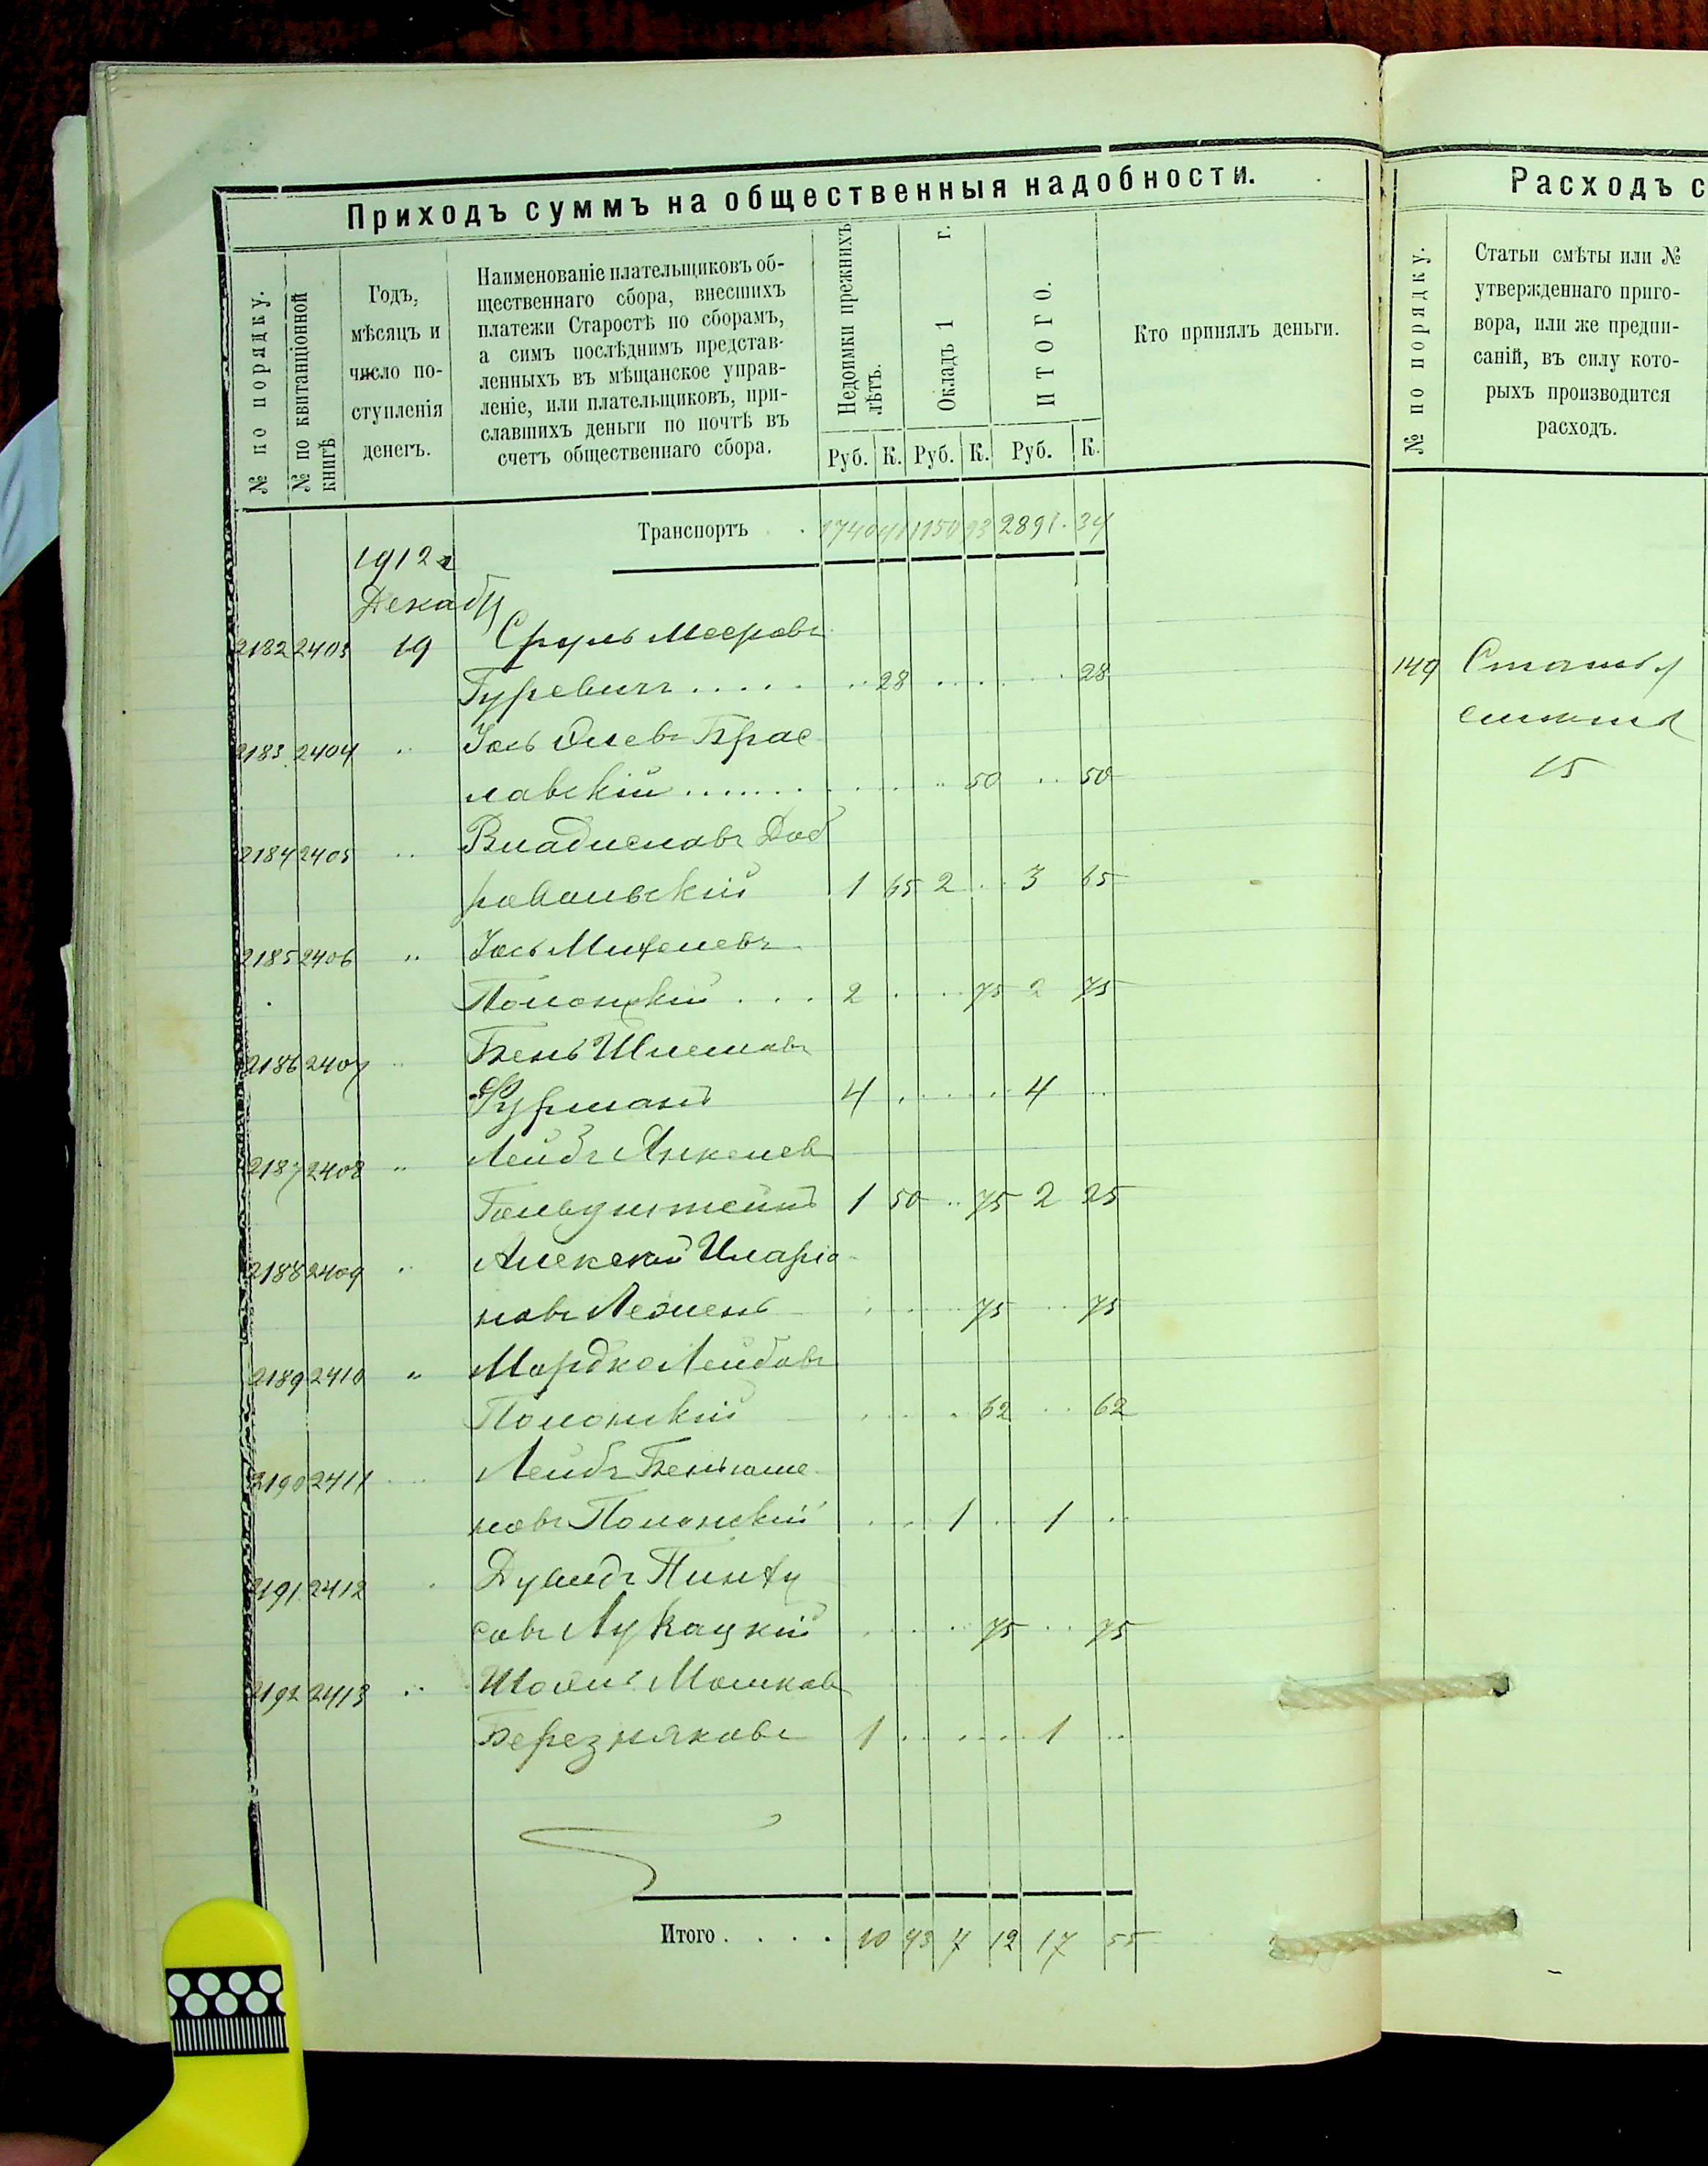 Приходъ суммъ на общественныя надобности.
№ по порядку.
№ по квитанціонной книгѣ
Годъ, мѣсяцъ и число поступленія денегъ.
Наименованіе плательщиковъ об-
щественнаго сбора, внесшихъ
платежи Старостѣ по сборамъ,
а симъ послѣднимъ представ-
ленныхъ въ мѣщанское управ-
леніе, или плательщиковъ, при-
славшихъ деньги по почтѣ въ
счетъ общественнаго сбора.
Недоимки прежнихъ лѣтъ.
Окладъ 1 г.
ИТОГО.
Кто принялъ деньги.
Руб. К. Руб. К. Руб. К.
Транспортъ . . 1740 41 1150 93 2891 34
1912 г
Декабр
2182 2403 19 Сруль Мееровъ
Гуревичъ ..... 28 28
2183 2404 " Іось Ошев Брас
лавскій ....... 50 50
2184 2405 " Владиславъ Доб
ровольскій 1 65 2 .. 3 65
2185 2406 " Іось Михелевъ
Полонскій . . . 2 75 2 75
2186 2407 " Бень Шлемовъ
Фурманъ 4 4
2187 2408 " Лейбъ Янкелев
Гольдштейнъ 1 50 75 2 25
2188 2409 " Алексѣй Иларіо
новъ Лежень 75 75
2189 2410 " Мордко Лейбовъ
Полонскій 62 62
2190 2411 " Лейбъ Беньюми
новъ Полонскій 1 1
2191 2412 " Дувидъ Пинху
совъ Лукацкій 75 75
2192 2413 " Мошков
Березняковъ 1 1
Итого . . . . 10 43 7 12 17 55
Расходъ с
№ по порядку.
Статьи смѣты или №
утвержденнаго приго-
вора, или же предпи-
саній, въ силу кото-
рыхъ производится
расходъ.
149 Статья
смѣты
15